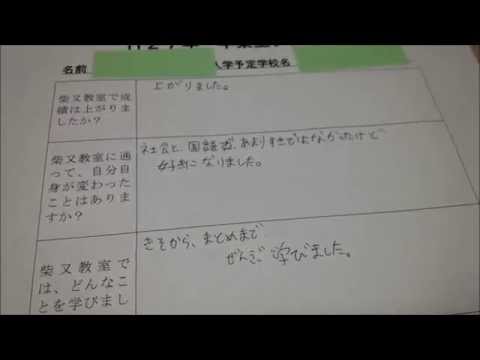 名前
入学予定学校名
柴又教室で成
績は上がりま
したか？
上がりました。
柴又教室に通
って、自分自
身が変わった
ことはありま
すか？
社会と、国語が、あまりすきではなかったけど
好きになりました。
柴又教室で
は、どんなこ
とを学びまし
きそから、まとめまで
ぜんぶ、学びました。